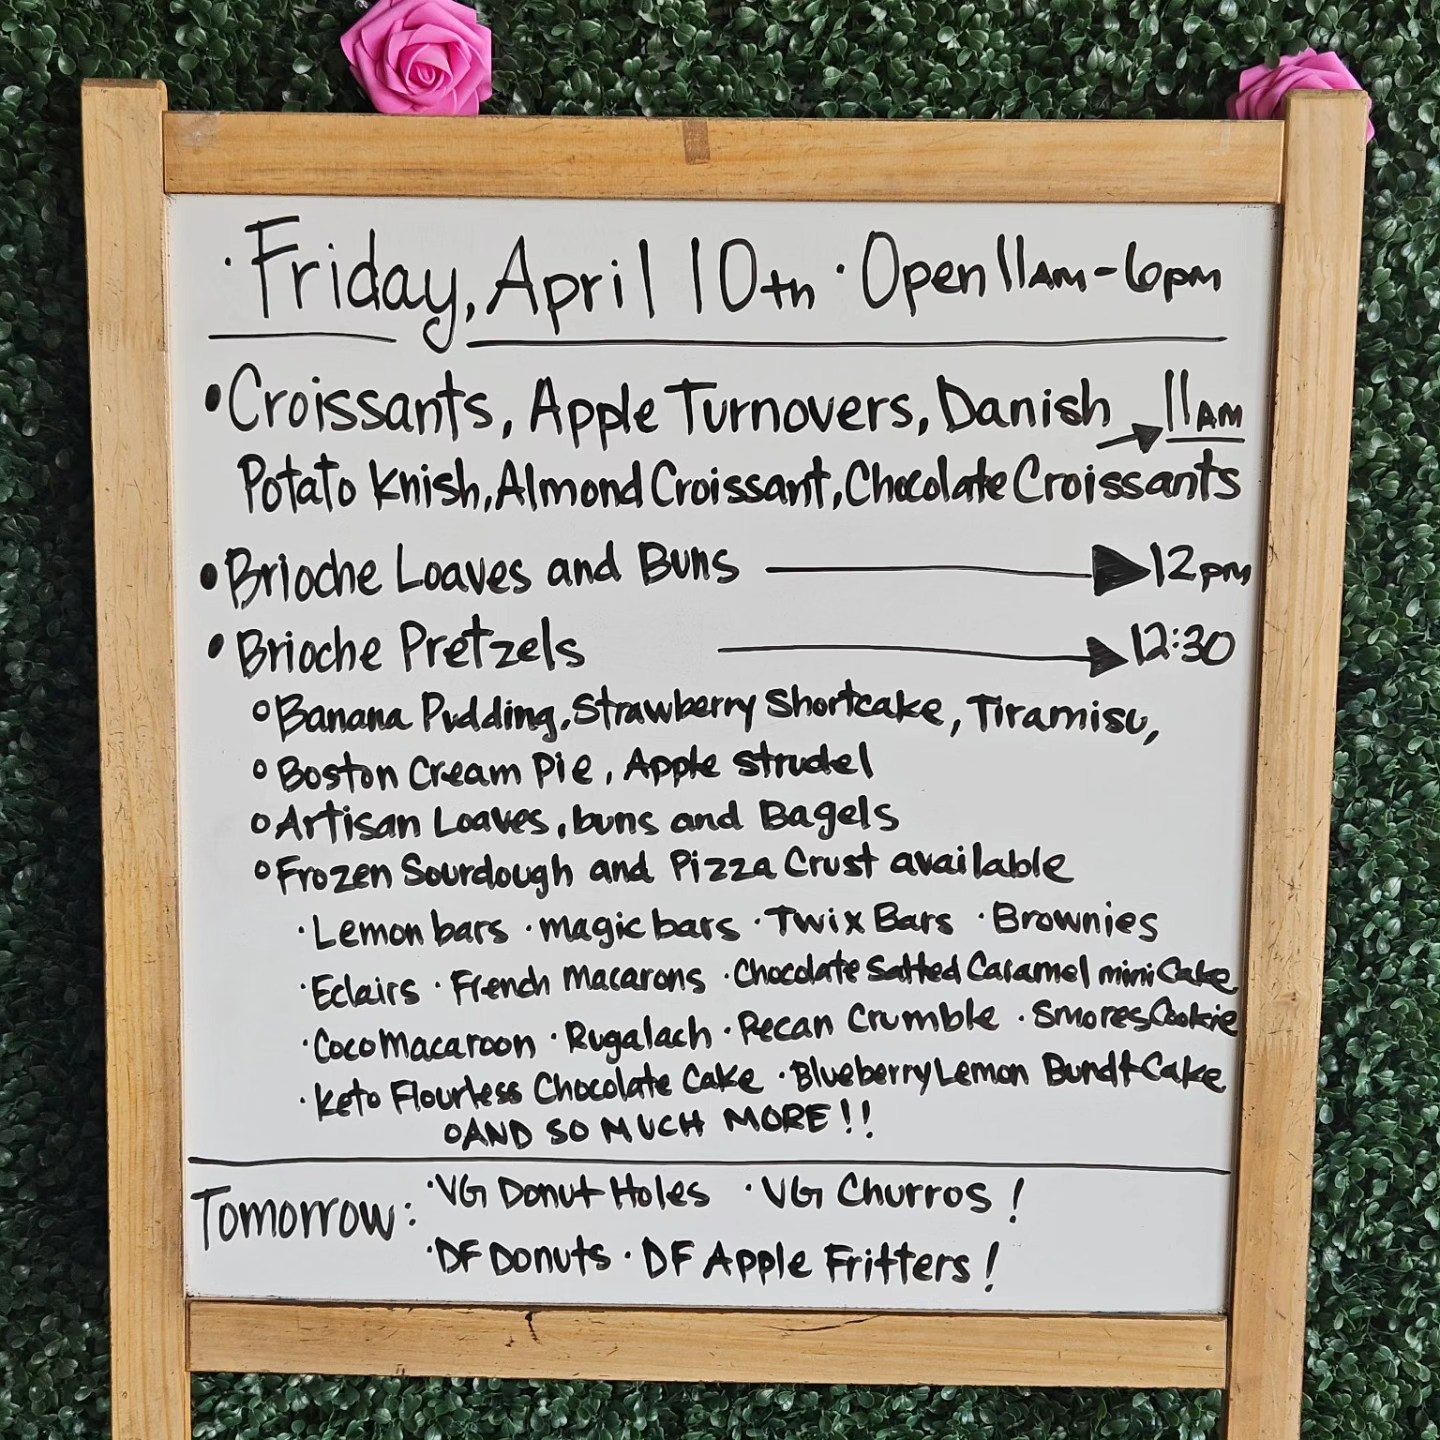 · Friday, April 10th · Open 11AM-6pm
• Croissants, Apple Turnovers, Danish → 11AM
Potato Knish, Almond Croissant, Chocolate Croissants
• Brioche Loaves and Buns → 12pm
• Brioche Pretzels → 12:30
◦ Banana Pudding, Strawberry Shortcake, Tiramisu,
◦ Boston Cream Pie, Apple Strudel
◦ Artisan Loaves, buns and Bagels
◦ Frozen Sourdough and Pizza Crust available
· Lemon bars · magic bars · Twix Bars · Brownies
· Eclairs · French Macarons · Chocolate Salted Caramel mini Cake
· Coco Macaroon · Rugalach · Pecan Crumble · Smores Cookie
· Keto Flourless Chocolate Cake · Blueberry Lemon Bundt Cake
◦ AND SO MUCH MORE!!
Tomorrow: · VG Donut Holes · VG Churros!
· DF Donuts · DF Apple Fritters!